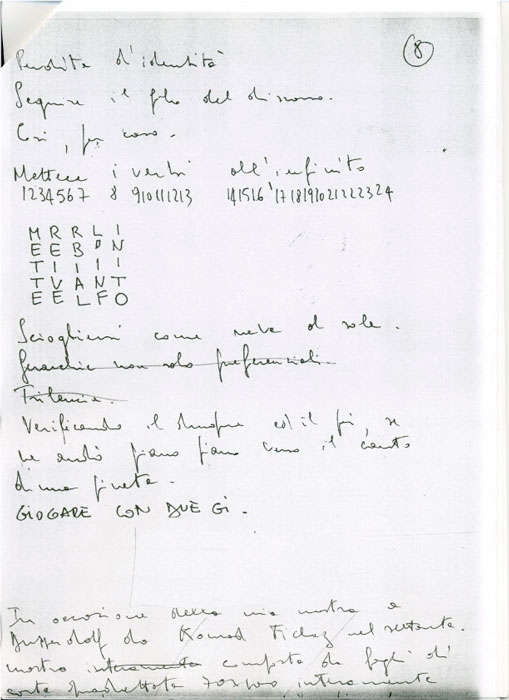 8
Perdita d'identità
Seguire il filo del discorso.
Così, per caso.
Mettere i verbi all'infinito
1234567 8 910111213 141516 '1718192021222324
M R R L I
E E B 'I N
T I I I I
T V A N T
E E L F O
Sciogliersi come neve al sole.
Gerarchie non solo preferenziali.
Verificando il dunque ed il poi, se
ne andò piano piano verso il canto
di una pineta.
GIOGARE CON DUE GI.
In occasione della mia mostra a
Dusseldorf da Konrad nel settanta.
mostra interamente composta da fogli di
carta quadrettata 70x100 interamente